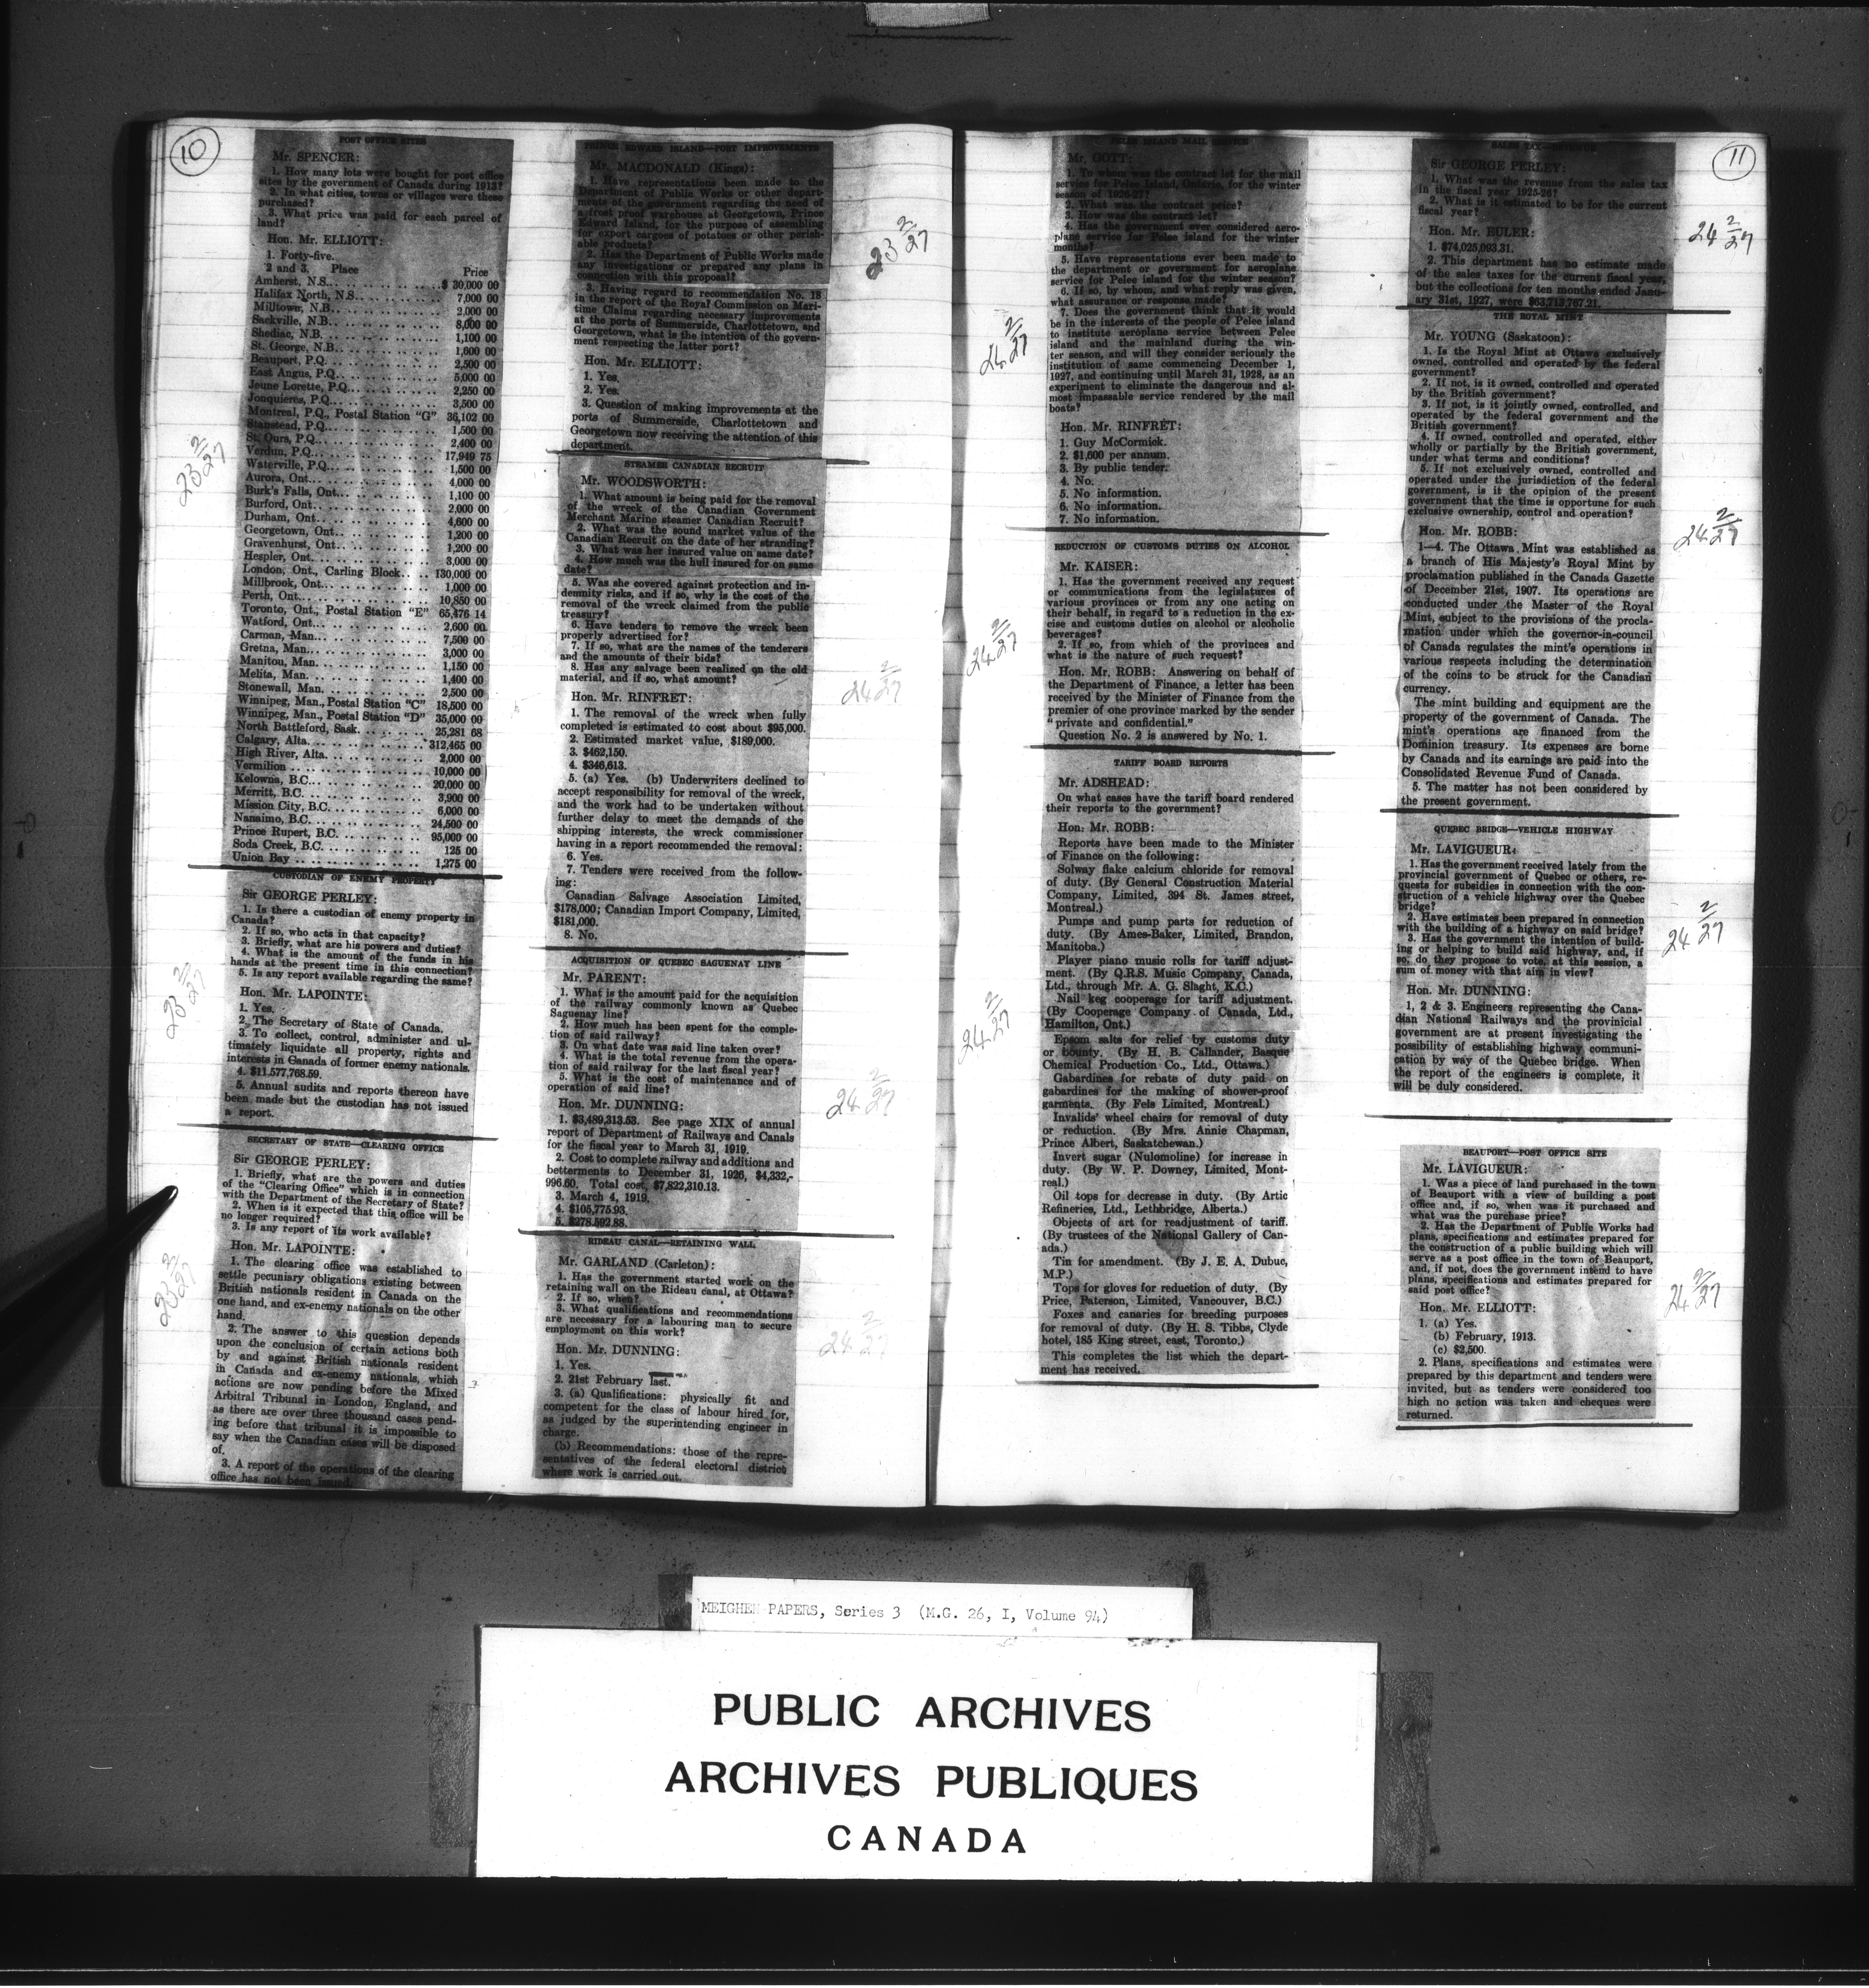 10
POST OFFICE SITES
Mr. SPENCER:
1. How many lots were bought for post office
sites by the government of Canada during 1913?
2. In what cities, towns or villages were these
purchased?
3. What price was paid for each parcel of
land?
Hon. Mr. ELLIOTT:
1. Forty-five.
2 and 3. Place Price
Amherst, N.S. $ 30,000 00
Halifax North, N.S. 7,000 00
Milltown, N.B. 2,000 00
Sackville, N.B. 8,000 00
Shediac, N.B. 1,100 00
St. George, N.B. 1,600 00
Beauport, P.Q. 2,500 00
East Angus, P.Q. 5,000 00
Jeune Lorette, P.Q. 2,250 00
Jonquieres, P.Q. 3,500 00
Montreal, P.Q., Postal Station "G" 36,102 00
Stanstead, P.Q. 1,500 00
St. Ours, P.Q. 2,400 00
Verdun, P.Q. 17,949 75
Waterville, P.Q. 1,500 00
Aurora, Ont. 4,000 00
Burk's Falls, Ont. 1,100 00
Burford, Ont. 2,000 00
Durham, Ont. 4,600 00
Georgetown, Ont. 1,200 00
Gravenhurst, Ont. 1,200 00
Hespler, Ont. 3,000 00
London, Ont., Carling Block 130,000 00
Millbrook, Ont. 1,000 00
Perth, Ont. 10,850 00
Toronto, Ont., Postal Station "E" 65,476 14
Watford, Ont. 2,600 00
Carman, Man. 7,500 00
Gretna, Man. 3,000 00
Manitou, Man. 1,150 00
Melita, Man. 1,400 00
Stonewall, Man. 2,500 00
Winnipeg, Man., Postal Station "C" 18,500 00
Winnipeg, Man., Postal Station "D" 35,000 00
North Battleford, Sask. 25,281 68
Calgary, Alta. 312,465 00
High River, Alta. 2,000 00
Vermilion 10,000 00
Kelowna, B.C. 20,000 00
Merritt, B.C. 3,900 00
Mission City, B.C. 6,000 00
Nanaimo, B.C. 24,500 00
Prince Rupert, B.C. 95,000 00
Soda Creek, B.C. 125 00
Union Bay 1,275 00
23 2/27
CUSTODIAN OF ENEMY PROPERTY
Sir GEORGE PERLEY:
1. Is there a custodian of enemy property in
Canada?
2. If so, who acts in that capacity?
3. Briefly, what are his powers and duties?
4. What is the amount of the funds in his
hands at the present time in this connection?
5. Is any report available regarding the same?
Hon. Mr. LAPOINTE:
1. Yes.
2. The Secretary of State of Canada.
3. To collect, control, administer and ul-
timately liquidate all property, rights and
interests in Canada of former enemy nationals.
4. $11,577,768.59.
5. Annual audits and reports thereon have
been made but the custodian has not issued
a report.
23 2/27
SECRETARY OF STATE—CLEARING OFFICE
Sir GEORGE PERLEY:
1. Briefly, what are the powers and duties
of the "Clearing Office" which is in connection
with the Department of the Secretary of State?
2. When is it expected that this office will be
no longer required?
3. Is any report of its work available?
Hon. Mr. LAPOINTE:
1. The clearing office was established to
settle pecuniary obligations existing between
British nationals resident in Canada on the
one hand, and ex-enemy nationals on the other
hand.
2. The answer to this question depends
upon the conclusion of certain actions both
by and against British nationals resident
in Canada and ex-enemy nationals, which
actions are now pending before the Mixed
Arbitral Tribunal in London, England, and
as there are over three thousand cases pend-
ing before that tribunal it is impossible to
say when the Canadian cases will be disposed
of.
3. A report of the operations of the clearing
office has not been issued.
23 2/27
PRINCE EDWARD ISLAND—PORT IMPROVEMENTS
Mr. MACDONALD (Kings):
1. Have representations been made to the
Department of Public Works or other depart-
ments of the government regarding the need of
a frost proof warehouse at Georgetown, Prince
Edward Island, for the purpose of assembling
for export cargoes of potatoes or other perish-
able products?
2. Has the Department of Public Works made
any investigations or prepared any plans in
connection with this proposal?
3. Having regard to recommendation No. 18
in the report of the Royal Commission on Mari-
time Claims regarding necessary improvements
at the ports of Summerside, Charlottetown, and
Georgetown, what is the intention of the govern-
ment respecting the latter port?
Hon. Mr. ELLIOTT:
1. Yes.
2. Yes.
3. Question of making improvements at the
ports of Summerside, Charlottetown and
Georgetown now receiving the attention of this
department.
23 2/27
STEAMER CANADIAN RECRUIT
Mr. WOODSWORTH:
1. What amount is being paid for the removal
of the wreck of the Canadian Government
Merchant Marine steamer Canadian Recruit?
2. What was the sound market value of the
Canadian Recruit on the date of her stranding?
3. What was her insured value on same date?
4. How much was the hull insured for on same
date?
5. Was she covered against protection and in-
demnity risks, and if so, why is the cost of the
removal of the wreck claimed from the public
treasury?
6. Have tenders to remove the wreck been
properly advertised for?
7. If so, what are the names of the tenderers
and the amounts of their bids?
8. Has any salvage been realized on the old
material, and if so, what amount?
Hon. Mr. RINFRET:
1. The removal of the wreck when fully
completed is estimated to cost about $95,000.
2. Estimated market value, $189,000.
3. $462,150.
4. $346,613.
5. (a) Yes. (b) Underwriters declined to
accept responsibility for removal of the wreck,
and the work had to be undertaken without
further delay to meet the demands of the
shipping interests, the wreck commissioner
having in a report recommended the removal:
6. Yes.
7. Tenders were received from the follow-
ing:
Canadian Salvage Association Limited,
$178,000; Canadian Import Company, Limited,
$181,000.
8. No.
24 2/27
ACQUISITION OF QUEBEC SAGUENAY LINE
Mr. PARENT:
1. What is the amount paid for the acquisition
of the railway commonly known as Quebec
Saguenay line?
2. How much has been spent for the comple-
tion of said railway?
3. On what date was said line taken over?
4. What is the total revenue from the opera-
tion of said railway for the last fiscal year?
5. What is the cost of maintenance and of
operation of said line?
Hon. Mr. DUNNING:
1. $3,489,313.53. See page XIX of annual
report of Department of Railways and Canals
for the fiscal year to March 31, 1919.
2. Cost to complete railway and additions and
betterments to December 31, 1926, $4,332,-
996.60. Total cost, $7,822,310.13.
3. March 4, 1919.
4. $105,775.93.
5. $278,592.88.
24 2/27
RIDEAU CANAL—RETAINING WALL
Mr. GARLAND (Carleton):
1. Has the government started work on the
retaining wall on the Rideau canal, at Ottawa?
2. If so, when?
3. What qualifications and recommendations
are necessary for a labouring man to secure
employment on this work?
Hon. Mr. DUNNING:
1. Yes.
2. 21st February last.
3. (a) Qualifications: physically fit and
competent for the class of labour hired for,
as judged by the superintending engineer in
charge.
(b) Recommendations: those of the repre-
sentatives of the federal electoral district
where work is carried out.
24 2/27
11
PELEE ISLAND MAIL SERVICE
Mr. GOTT:
1. To whom was the contract let for the mail
service for Pelee Island, Ontario, for the winter
season of 1926-27?
2. What was the contract price?
3. How was the contract let?
4. Has the government ever considered aero-
plane service for Pelee island for the winter
months?
5. Have representations ever been made to
the department or government for aeroplane
service for Pelee island for the winter season?
6. If so, by whom, and what reply was given,
what assurance or response made?
7. Does the government think that it would
be in the interests of the people of Pelee island
to institute aeroplane service between Pelee
island and the mainland during the win-
ter season, and will they consider seriously the
institution of same commencing December 1,
1927, and continuing until March 31, 1928, as an
experiment to eliminate the dangerous and al-
most impassable service rendered by the mail
boats?
Hon. Mr. RINFRET:
1. Guy McCormick.
2. $1,600 per annum.
3. By public tender.
4. No.
5. No information.
6. No information.
7. No information.
24 2/27
REDUCTION OF CUSTOMS DUTIES ON ALCOHOL
Mr. KAISER:
1. Has the government received any request
or communications from the legislatures of
various provinces or from any one acting on
their behalf, in regard to a reduction in the ex-
cise and customs duties on alcohol or alcoholic
beverages?
2. If so, from which of the provinces and
what is the nature of such request?
Hon. Mr. ROBB: Answering on behalf of
the Department of Finance, a letter has been
received by the Minister of Finance from the
premier of one province marked by the sender
"private and confidential."
Question No. 2 is answered by No. 1.
24 2/27
TARIFF BOARD REPORTS
Mr. ADSHEAD:
On what cases have the tariff board rendered
their reports to the government?
Hon. Mr. ROBB:
Reports have been made to the Minister
of Finance on the following:
Solway flake calcium chloride for removal
of duty. (By General Construction Material
Company, Limited, 394 St. James street,
Montreal.)
Pumps and pump parts for reduction of
duty. (By Ames-Baker, Limited, Brandon,
Manitoba.)
Player piano music rolls for tariff adjust-
ment. (By Q.R.S. Music Company, Canada,
Ltd., through Mr. A. G. Slaght, K.C.)
Nail keg cooperage for tariff adjustment.
(By Cooperage Company of Canada, Ltd.,
Hamilton, Ont.)
Epsom salts for relief by customs duty
or bounty. (By H. B. Callander, Basque
Chemical Production Co., Ltd., Ottawa.)
Gabardines for rebate of duty paid on
gabardines for the making of shower-proof
garments. (By Fels Limited, Montreal.)
Invalids' wheel chairs for removal of duty
or reduction. (By Mrs. Annie Chapman,
Prince Albert, Saskatchewan.)
Invert sugar (Nulomoline) for increase in
duty. (By W. P. Downey, Limited, Mont-
real.)
Oil tops for decrease in duty. (By Artic
Refineries, Ltd., Lethbridge, Alberta.)
Objects of art for readjustment of tariff.
(By trustees of the National Gallery of Can-
ada.)
Tin for amendment. (By J. E. A. Dubuc,
M.P.)
Tops for gloves for reduction of duty. (By
Price, Paterson, Limited, Vancouver, B.C.)
Foxes and canaries for breeding purposes
for removal of duty. (By H. S. Tibbs, Clyde
hotel, 185 King street, east, Toronto.)
This completes the list which the depart-
ment has received.
24 2/27
SALES TAX—REVENUE
Sir GEORGE PERLEY:
1. What was the revenue from the sales tax
in the fiscal year 1925-26?
2. What is it estimated to be for the current
fiscal year?
Hon. Mr. EULER:
1. $74,025,093.31.
2. This department has no estimate made
of the sales taxes for the current fiscal year,
but the collections for ten months ended Janu-
ary 31st, 1927, were $63,713,767.21.
24 2/27
THE ROYAL MINT
Mr. YOUNG (Saskatoon):
1. Is the Royal Mint at Ottawa exclusively
owned, controlled and operated by the federal
government?
2. If not, is it owned, controlled and operated
by the British government?
3. If not, is it jointly owned, controlled, and
operated by the federal government and the
British government?
4. If owned, controlled and operated, either
wholly or partially by the British government,
under what terms and conditions?
5. If not exclusively owned, controlled and
operated under the jurisdiction of the federal
government, is it the opinion of the present
government that the time is opportune for such
exclusive ownership, control and operation?
Hon. Mr. ROBB:
1—4. The Ottawa Mint was established as
a branch of His Majesty's Royal Mint by
proclamation published in the Canada Gazette
of December 21st, 1907. Its operations are
conducted under the Master of the Royal
Mint, subject to the provisions of the procla-
mation under which the governor-in-council
of Canada regulates the mint's operations in
various respects including the determination
of the coins to be struck for the Canadian
currency.
The mint building and equipment are the
property of the government of Canada. The
mint's operations are financed from the
Dominion treasury. Its expenses are borne
by Canada and its earnings are paid into the
Consolidated Revenue Fund of Canada.
5. The matter has not been considered by
the present government.
24 2/27
QUEBEC BRIDGE—VEHICLE HIGHWAY
Mr. LAVIGUEUR:
1. Has the government received lately from the
provincial government of Quebec or others, re-
quests for subsidies in connection with the con-
struction of a vehicle highway over the Quebec
bridge?
2. Have estimates been prepared in connection
with the building of a highway on said bridge?
3. Has the government the intention of build-
ing or helping to build said highway, and, if
so, do they propose to vote, at this session, a
sum of money with that aim in view?
Hon. Mr. DUNNING:
1, 2 & 3. Engineers representing the Cana-
dian National Railways and the provinicial
government are at present investigating the
possibility of establishing highway communi-
cation by way of the Quebec bridge. When
the report of the engineers is complete, it
will be duly considered.
24 2/27
BEAUPORT—POST OFFICE SITE
Mr. LAVIGUEUR:
1. Was a piece of land purchased in the town
of Beauport with a view of building a post
office and, if so, when was it purchased and
what was the purchase price?
2. Has the Department of Public Works had
plans, specifications and estimates prepared for
the construction of a public building which will
serve as a post office in the town of Beauport,
and, if not, does the government intend to have
plans, specifications and estimates prepared for
said post office?
Hon. Mr. ELLIOTT:
1. (a) Yes.
(b) February, 1913.
(c) $2,500.
2. Plans, specifications and estimates were
prepared by this department and tenders were
invited, but as tenders were considered too
high no action was taken and cheques were
returned.
24 2/27
MEIGHEN PAPERS, Series 3 (M.G. 26, I, Volume 94)
PUBLIC ARCHIVES
ARCHIVES PUBLIQUES
CANADA